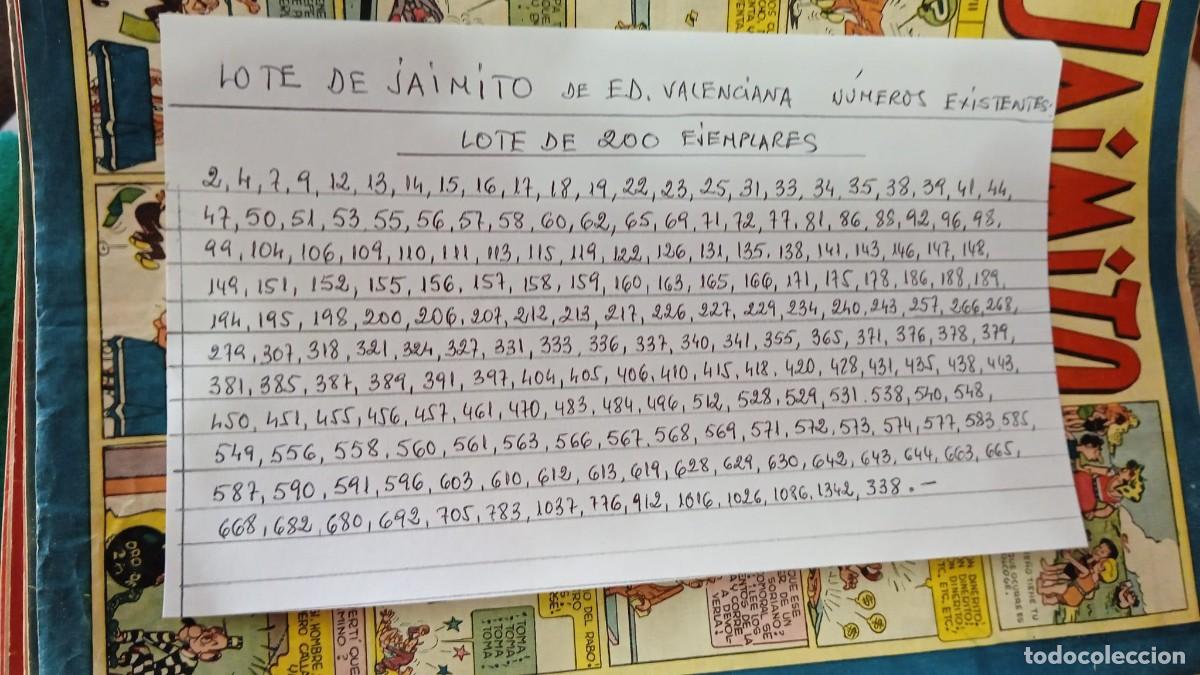 LOTE DE JAIMITO DE ED. VALENCIANA NÚMEROS EXISTENTES.
LOTE DE 200 EJEMPLARES
2, 4, 7, 9, 12, 13, 14, 15, 16, 17, 18, 19, 22, 23, 25, 31, 33, 34, 35, 38, 39, 41, 44,
47, 50, 51, 53, 55, 56, 57, 58, 60, 62, 65, 69, 71, 72, 77, 81, 86, 88, 92, 96, 98,
99, 104, 106, 109, 110, 111, 113, 115, 119, 122, 126, 131, 135. 138, 141, 143, 146, 147, 148,
149, 151, 152, 155, 156, 157, 158, 159, 160, 163, 165, 166, 171, 175, 178, 186, 188, 189,
194, 195, 198, 200, 206, 207, 212, 213, 217, 226, 227, 229, 234, 240, 243, 257, 266, 268,
279, 307, 318, 321, 324, 327, 331, 333, 336, 337, 340, 341, 355, 365, 371, 376, 378, 379,
381, 385, 387, 389, 391, 397, 404, 405, 406, 410, 415, 418. 420, 428, 431, 435, 438, 443,
450, 451, 455, 456, 457, 461, 470, 483, 484, 496, 512, 528, 529, 531. 538, 540, 548,
549, 556, 558, 560, 561, 563, 566, 567, 568, 569, 571, 572, 573, 574, 577, 583, 585,
587, 590, 591, 596, 603, 610, 612, 613, 619, 628, 629, 630, 642, 643, 644, 663, 665,
668, 682, 680, 692, 705, 783, 1037, 776, 912, 1016, 1026, 1086, 1342, 338. —
JAIMITO
¡TOMA!
¡TOMA!
¡TOMA!
¡TOMA!
NO DEL RABO!
UN DINERITO,
UN DINERITO,
ETC. ETC.
todocoleccion